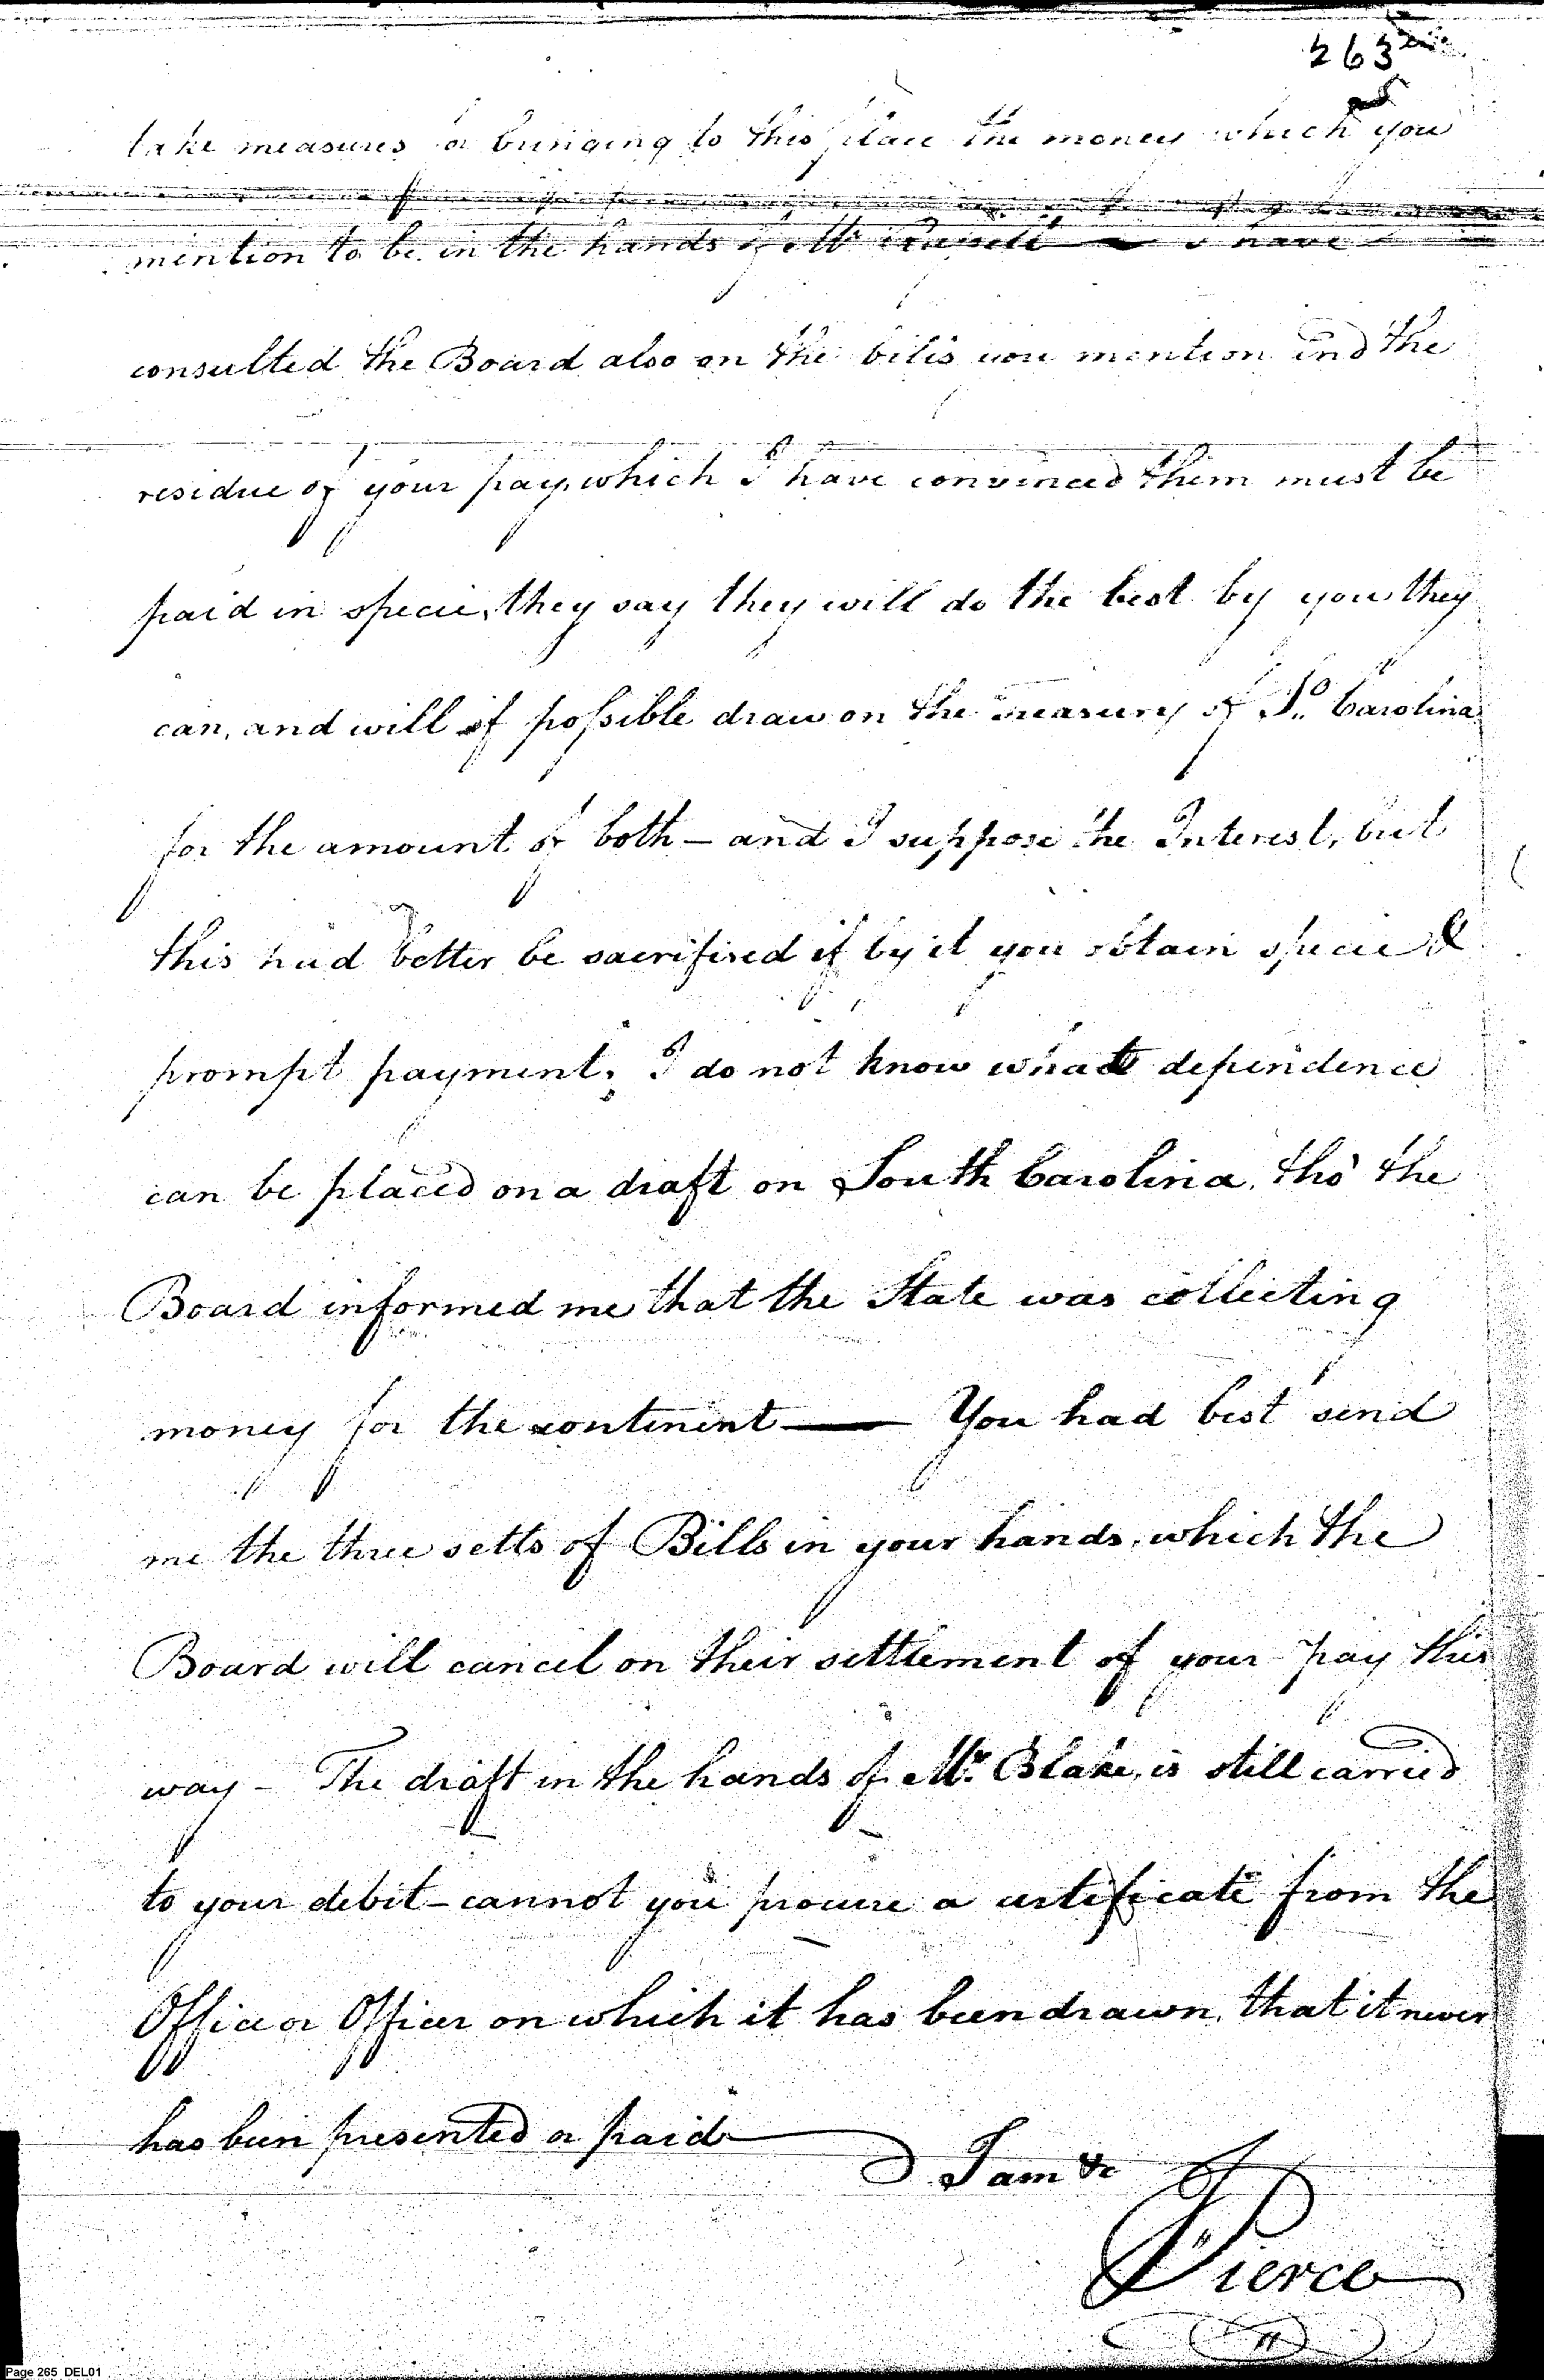 263
take measures for bringing to this place the money which you
mention to be in the hands of Mr. I have
consulted the Board also on the bills you mention and the
residue of your pay, which I have convinced them must be
paid in specie, they say they will do the best by you they
can, and will if possible draw on the treasury of So. Carolina
for the amount of both — and I suppose the Interest, but
this had better be sacrifised if by it you obtain specie &
prompt payment. I do not know what dependence
can be placed on a draft on South Carolina, tho' the
Board informed me that the State was collecting
money for the continent — You had best send
me the three setts of Bills in your hands, which the
Board will cancel on their settlement of your pay this
way — The draft in the hands of Mr. Blake, is still carried
to your debit — cannot you procure a certificate from the
Office or Officer on which it has been drawn, that it never
has been presented or paid
I am &c
Pierce
Page 265 DEL01